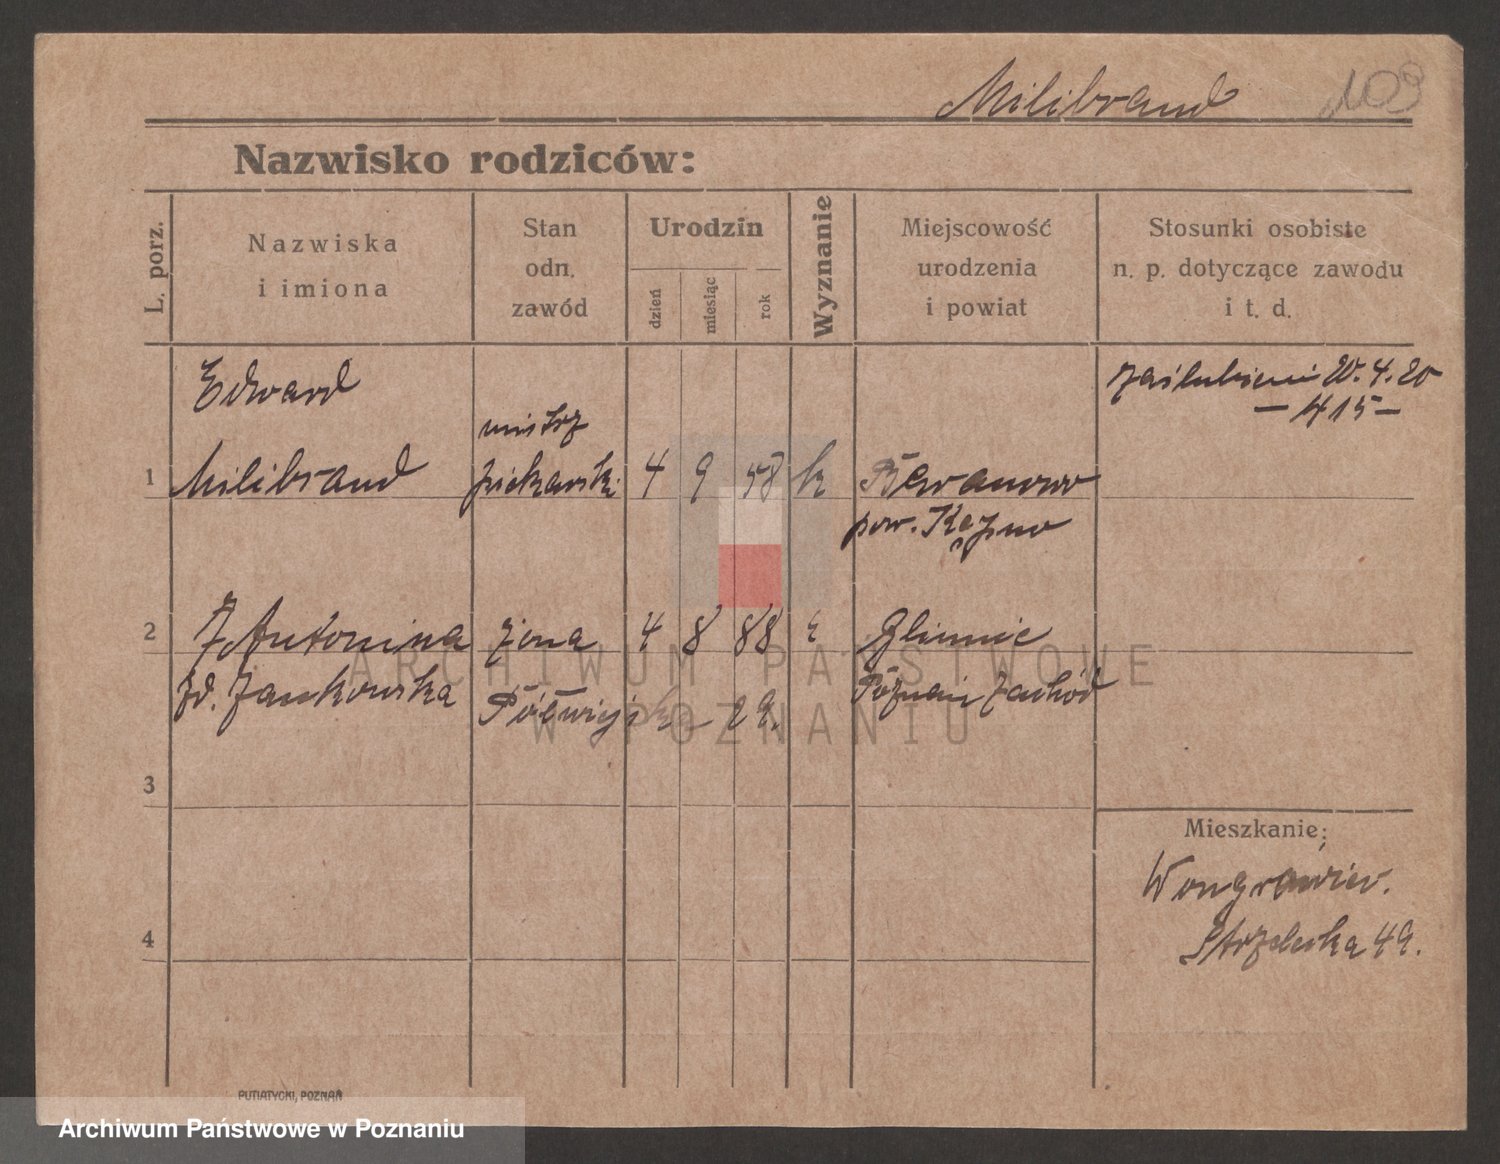 Milibrand 109
Nazwisko rodziców:
L. porz.
Nazwiska
i imiona
Stan
odn.
zawód
Urodzin
dzień
miesiąc
rok
Wyznanie
Miejscowość
urodzenia
i powiat
Stosunki osobiste
n. p. dotyczące zawodu
i t. d.
Edward
zaślubieni 20. 4. 20
— 415 —
mistrz
1 Milibrand piekarski 4 9 58 k
pow. Kępno
2 Antonina żona 4 8 88
zd. Jankowska
Poznań zachód
29.
3
4
Mieszkanie:
Wongrowiec.
Strzelecka 49.
PUTIATYCKI, POZNAŃ
ARCHIWUM PAŃSTWOWE
W POZNANIU
Archiwum Państwowe w Poznaniu